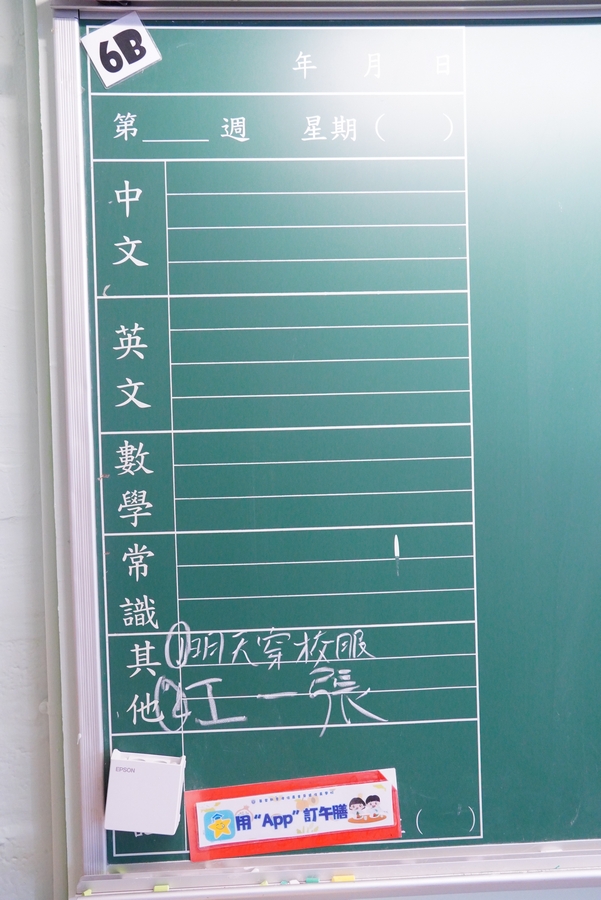 6B
年 月 日
第____週 星期( )
中文
英文
數學
常識
其他
①明天穿校服
②工一張
EPSON
用“App”訂午膳
( )